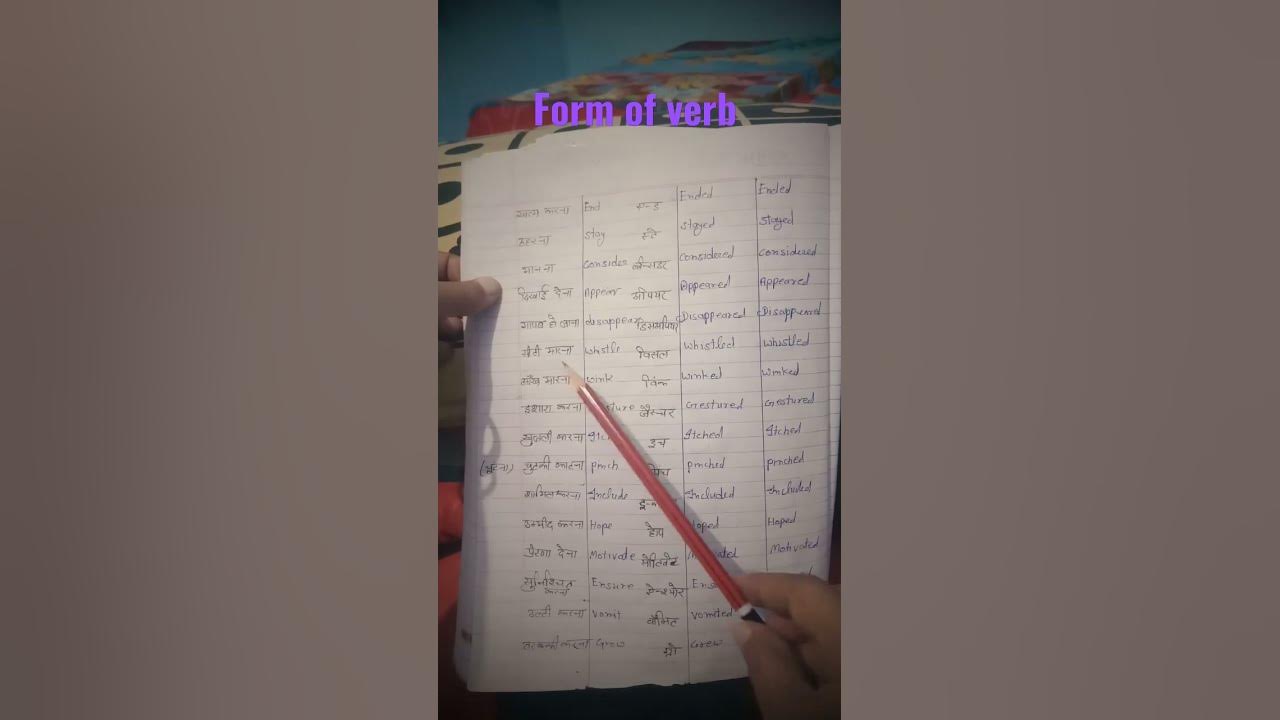 Form of verb
खत्म करना End एन्ड Ended Ended
ठहरना Stay स्टे Stayed Stayed
मानना Consider कॅन्सिडर Considered Considered
दिखाई देना Appear अपियर Appeared Appeared
गायब हो जाना disappear डिसअपियर Disappeared Disappeared
सीटी मारना Whistle विसल Whistled Whistled
आँख मारना wink विंक Winked Winked
इशारा करना जैस्चर Gestured Gestured
खुजली करना इच Itched Itched
चुटकी काटना pinch pinched pinched
शामिल करना Include Included Included
उम्मीद करना Hope होप Hoped Hoped
प्रेरणा देना Motivate मोटिवेट Motivated
सुनिश्चित करना Ensure एन्श्योर
उल्टी करना Vomit वॉमिट Vomited
तरक्की करना Grow ग्रो Grew